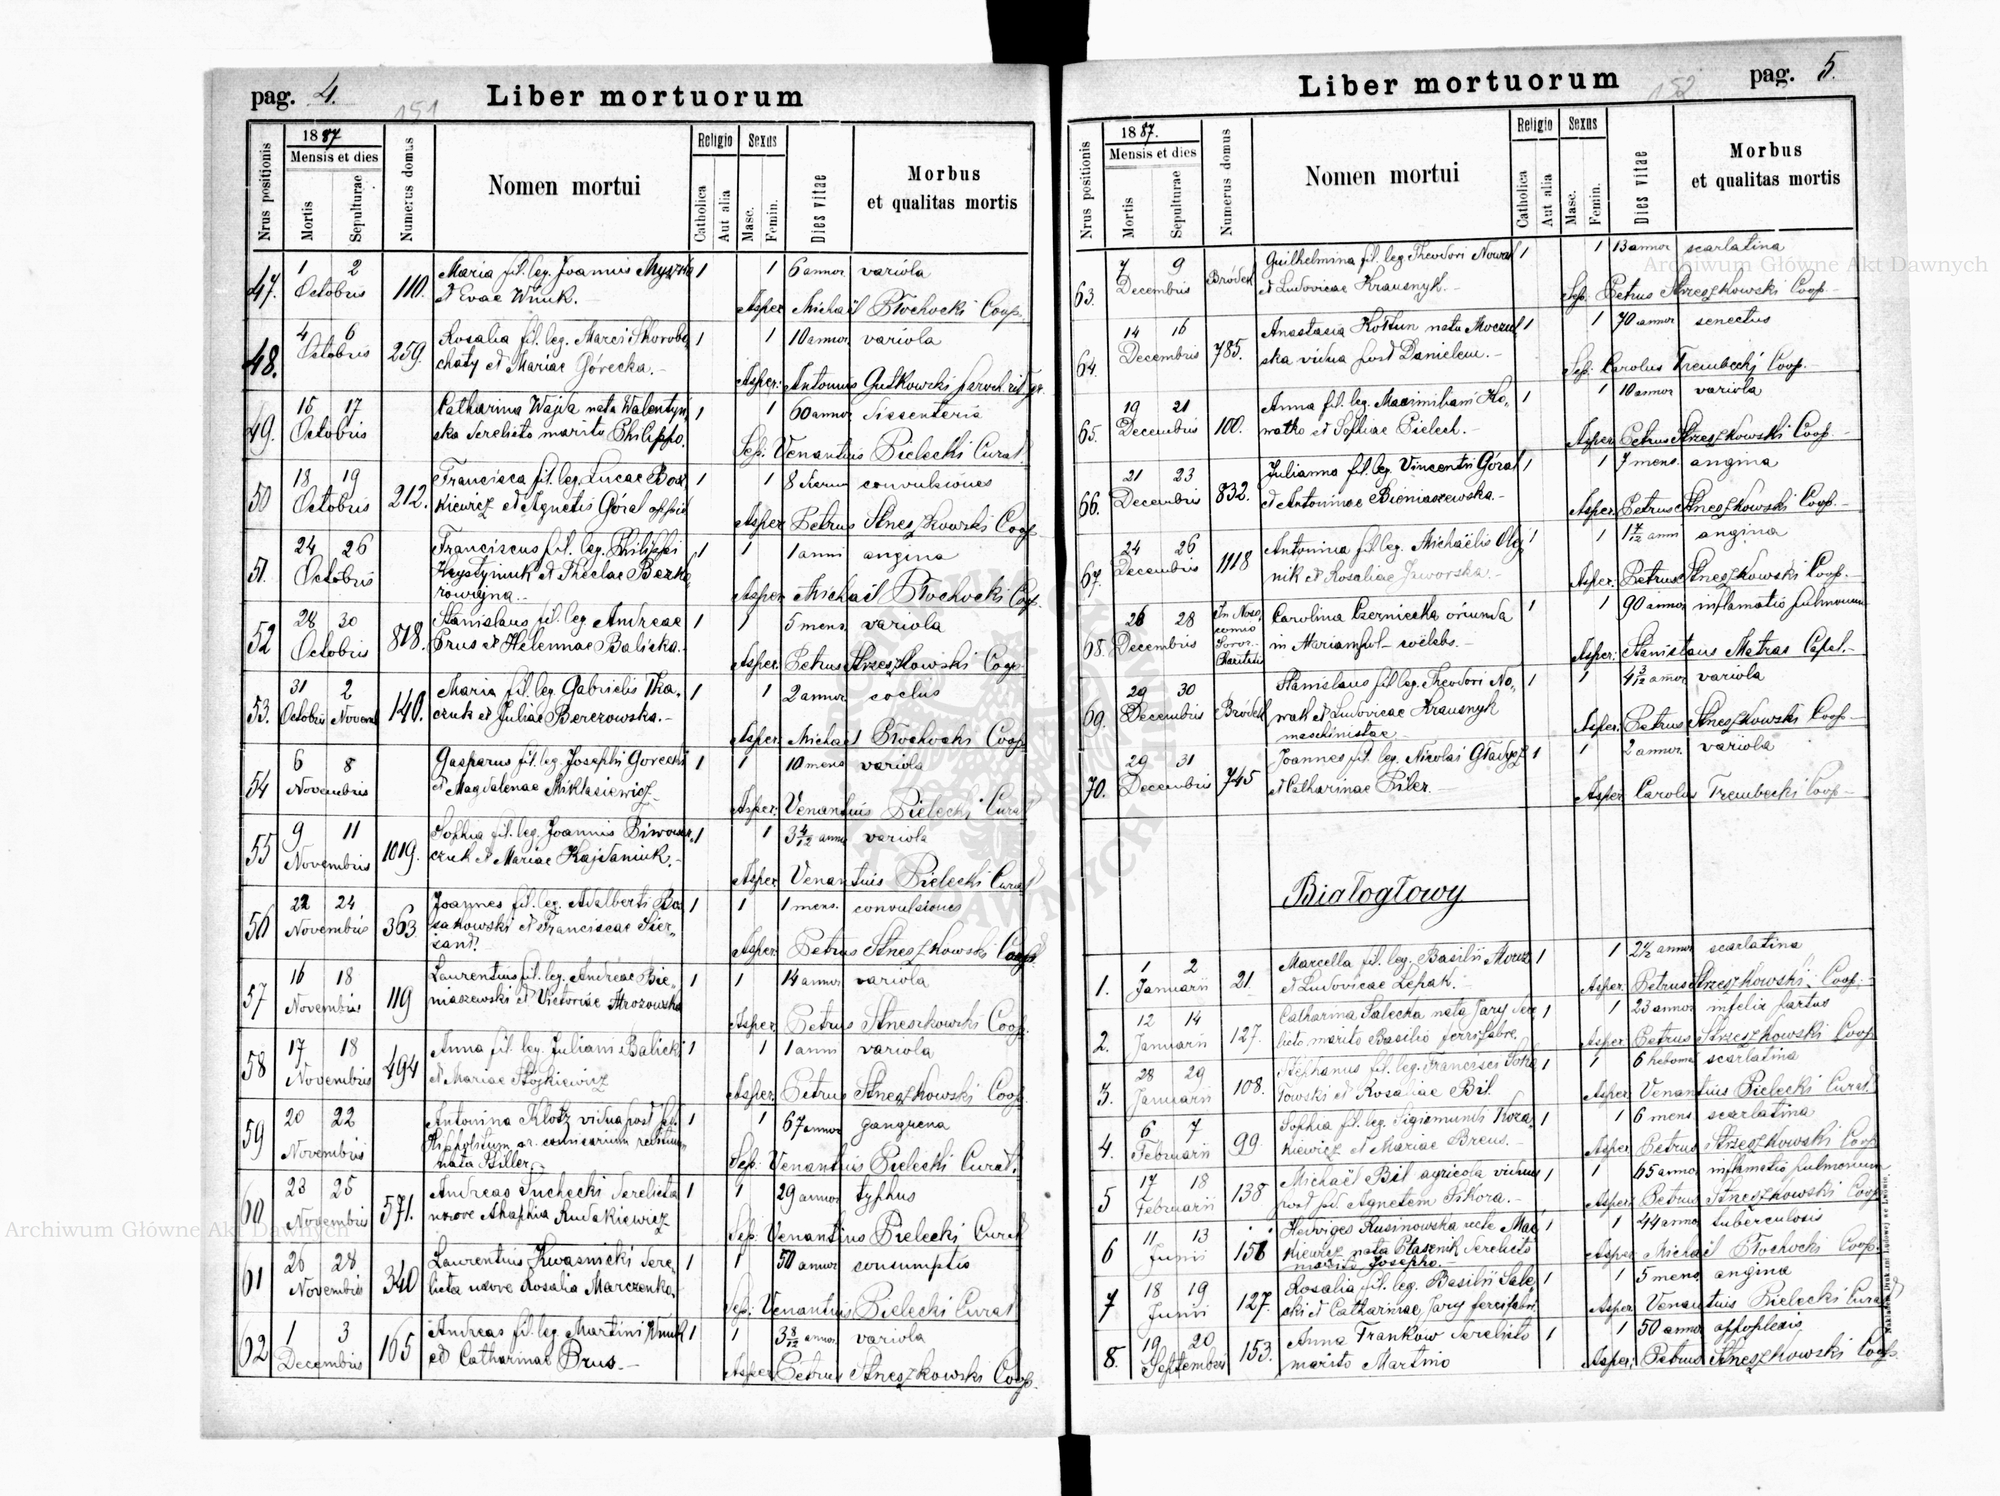 pag. 4.
151
Liber mortuorum
Nrus positionis
1887
Mensis et dies
Mortis
Sepulturae
Numerus domus
Nomen mortui
Religio
Catholica
Aut alia
Sexus
Masc.
Femin.
Dies vitae
Morbus
et qualitas mortis
47. 1 2 Octobris 110. Maria fil. leg. Joannis Myszka 1 1 6 annor. variola
et Evae Wnuk.-
Asper. Michaël Błochocki Coop.
48. 4 6 Octobris 259. Rosalia fil. leg. Marci Skorobo, 1 1 10 annor. variola
chaty et Mariae Górecka.-
Asper: Antonius Gutkowski paroch. rit. gr.
49. 15 17 Octobris Catharina Wajda nata Walentyń 1 1 60 annor. disenteria
ska derelicto marito Philippo.
Sep. Venantius Bielecki Curat.
50 18 19 Octobris 212. Francisca fil. leg. Lucae Bos 1 1 8 dierum convulsiones
kiewicz et Agnetis Góral
Asper Petrus Strzeszkowski Coop.
51. 24 26 Octobris Franciscus fil. leg. Philippi 1 1 1 anni angina
Krystyniuk et Theclae Berka
rowiejna.-
Asper Michaël Błochocki Coop.
52 28 30 Octobris 818. Stanislaus fil. leg. Andreae 1 1 5 mens. variola
Prus et Helennae Balicka.-
Asper. Petrus Strzeszkowski Coop.
53. 31 2 Octobris Novem 140. Maria fil. leg. Gabrielis Tka, 1 1 2 annor. coclus
czuk et Juliae Berezowska.-
Asper: Michael Błochocki Coop.
54 6 8 Novembris Gasparus fil. leg. Josephi Gorecki 1 1 10 mens. variola
et Magdalenae Miklasiewicz
Asper: Venantius Bielecki Curat
55 9 11 Novembris 1019. Sophia fil. leg. Joannis Piwowar, 1 1 3 4/12 annor. variola
czuk et Mariae Kajdaniuk.-
Asper. Venantius Bielecki Curat
56 22 24 Novembris 363. Joannes fil. leg. Adalberti Bos 1 1 1 mens. convulsiones
sakowski et Franciscae Sier,
żant.
Asper. Petrus Strzeszkowski Coop.
57 16 18 Novembris 119 Laurentius fil. leg. Andreae Bie, 1 1 14 annor. variola
niaszewski et Victoriae Mrozowska
Asper. Petrus Strzeszkowski Coop.
58 17 18 Novembris 494 Anna fil. leg. Juliani Balicki 1 1 1 anni variola
et Mariae Stojkiewicz
Asper. Petrus Strzeszkowski Coop.
59 20 22 Novembris Antonina Klotz vidua post
Hippolitum 1 1 67 annor. gangrena
nata Biller.-
Sep: Venantius Bielecki Curat.
60 23 25 Novembris 571. Andreas Suchecki derelicta 1 1 29 annor. typhus
uxore Ahaphia Rudakiewicz
Sep: Venantius Bielecki Curat
61 26 28 Novembris 340 Laurentius Kwasnicki dere, 1 1 50 annor. consumptio
licta uxore Rosalia Marczenko.
Sep: Venantius Bielecki Curat
62 1 3 Decembris 165 Andreas fil. leg. Martini Wnuk 1 1 3 8/12 annor. variola
et Catharinae Prus.-
Asper Petrus Strzeszkowski Coop.
Liber mortuorum
152
pag. 5.
Nrus positionis
1887.
Mensis et dies
Mortis
Sepulturae
Numerus domus
Nomen mortui
Religio
Catholica
Aut alia
Sexus
Masc.
Femin.
Dies vitae
Morbus
et qualitas mortis
63. 7 9 Decembris Bródek Guilhelmina fil. leg. Theodori Nowak 1 1 13 annor scarlatina
et Ludovicae Krausnyk.-
Sep: Petrus Strzeszkowski Coop.-
64. 14 16 Decembris 785. Anastasia Kołtun nata Moczul 1 1 70 annor senectus
ska vidua post Danielem.-
Sep: Carolus Trembecki Coop.
65. 19 21 Decembris 100. Anna fil. leg. Maximiliani Ko, 1 1 10 annor variola
watko et Sophiae Bielech.-
Asper Petrus Strzeszkowski Coop.-
66. 21 23 Decembris 832. Julianna fil. leg. Vincentii Góral 1 1 7 mens. angina
et Antoninae Bieniaszewska.-
Asper: Petrus Strzeszkowski Coop.-
67. 24 26 Decembris 1118 Antonina fil. leg. Michaëlis Olej 1 1 1 7/12 anni angina
nik et Rosaliae Jaworska.-
Asper. Petrus Strzeszkowski Coop.-
68. 26 28 Decembris In Noso,
comio
Soror.
Charitatis Carolina Czerniecka oriunda 1 1 90 annor inflamatio pulmonum
in Mariampol coëlebs.-
Asper: Stanislaus Matras Capel.-
69. 29 30 Decembris Bródek Stanislaus fil. leg. Theodori No, 1 1 4 3/12 annor variola
wak et Ludovicae Krausnyk
maschinistae
Asper: Petrus Strzeszkowski Coop.-
70. 29 31 Decembris 745 Joannes fil. leg. Nicolai Gładysz 1 1 2 annor. variola
et Catharinae Piler.-
Asper Carolus Trembecki Coop.-
Białogłowy
1. 1 2 Januarii 21. Marcella fil. leg. Basilii Moroz 1 1 2 1/2 annor scarlatina
et Ludovicae Lepak.-
Asper. Petrus Strzeszkowski Coop.-
2. 12 14 Januarii 127. Catharina Salecka nata Jary dere 1 1 23 annor infelix partus
licto marito Basilio ferrifabre.
Asper. Petrus Strzeszkowski Coop
3. 28 29 Januarii 108. Stephanus fil. leg. Francisci Soko 1 1 6 hebom scarlatina
łowski et Rosaliae Bił.
Asper Venantius Bielecki Curat
4. 6 7 Februarii 99 Sophia fil. leg. Sigismundi Kora, 1 1 6 mens scarlatina
kiewicz et Mariae Breus.-
Asper. Petrus Strzeszkowski Coop
5 17 18 Februarii 138 Michaël Bił agricola viduus 1 1 65 annor inflamatio pulmonum
post pd. Agnetem Sikora.-
Asper. Petrus Strzeszkowski Coop
6 11 13 Junii 156 Hedviges Rusinowska recte Mac 1 1 44 annor tuberculosis
kiewicz nata Ptasznik derelicto
marito Josepho.
Asper Michaël Błochocki Coop.
7 18 19 Junii 127. Rosalia fil. leg. Basilii Sale, 1 1 5 mens angina
cki et Catharinae Jary ferrifabri.
Asper. Venantius Bielecki Curat
8. 19 20 Septembris 153. Anna Frankow derelicto 1 1 50 annor apoplexis
marito Martino
Asper: Petrus Strzeszkowski Coop.
Archiwum Główne Akt Dawnych
Archiwum Główne Akt Dawnych